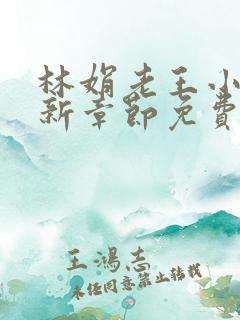 林娟老王小
新章節免費
王鴻志
未经同意禁止转载